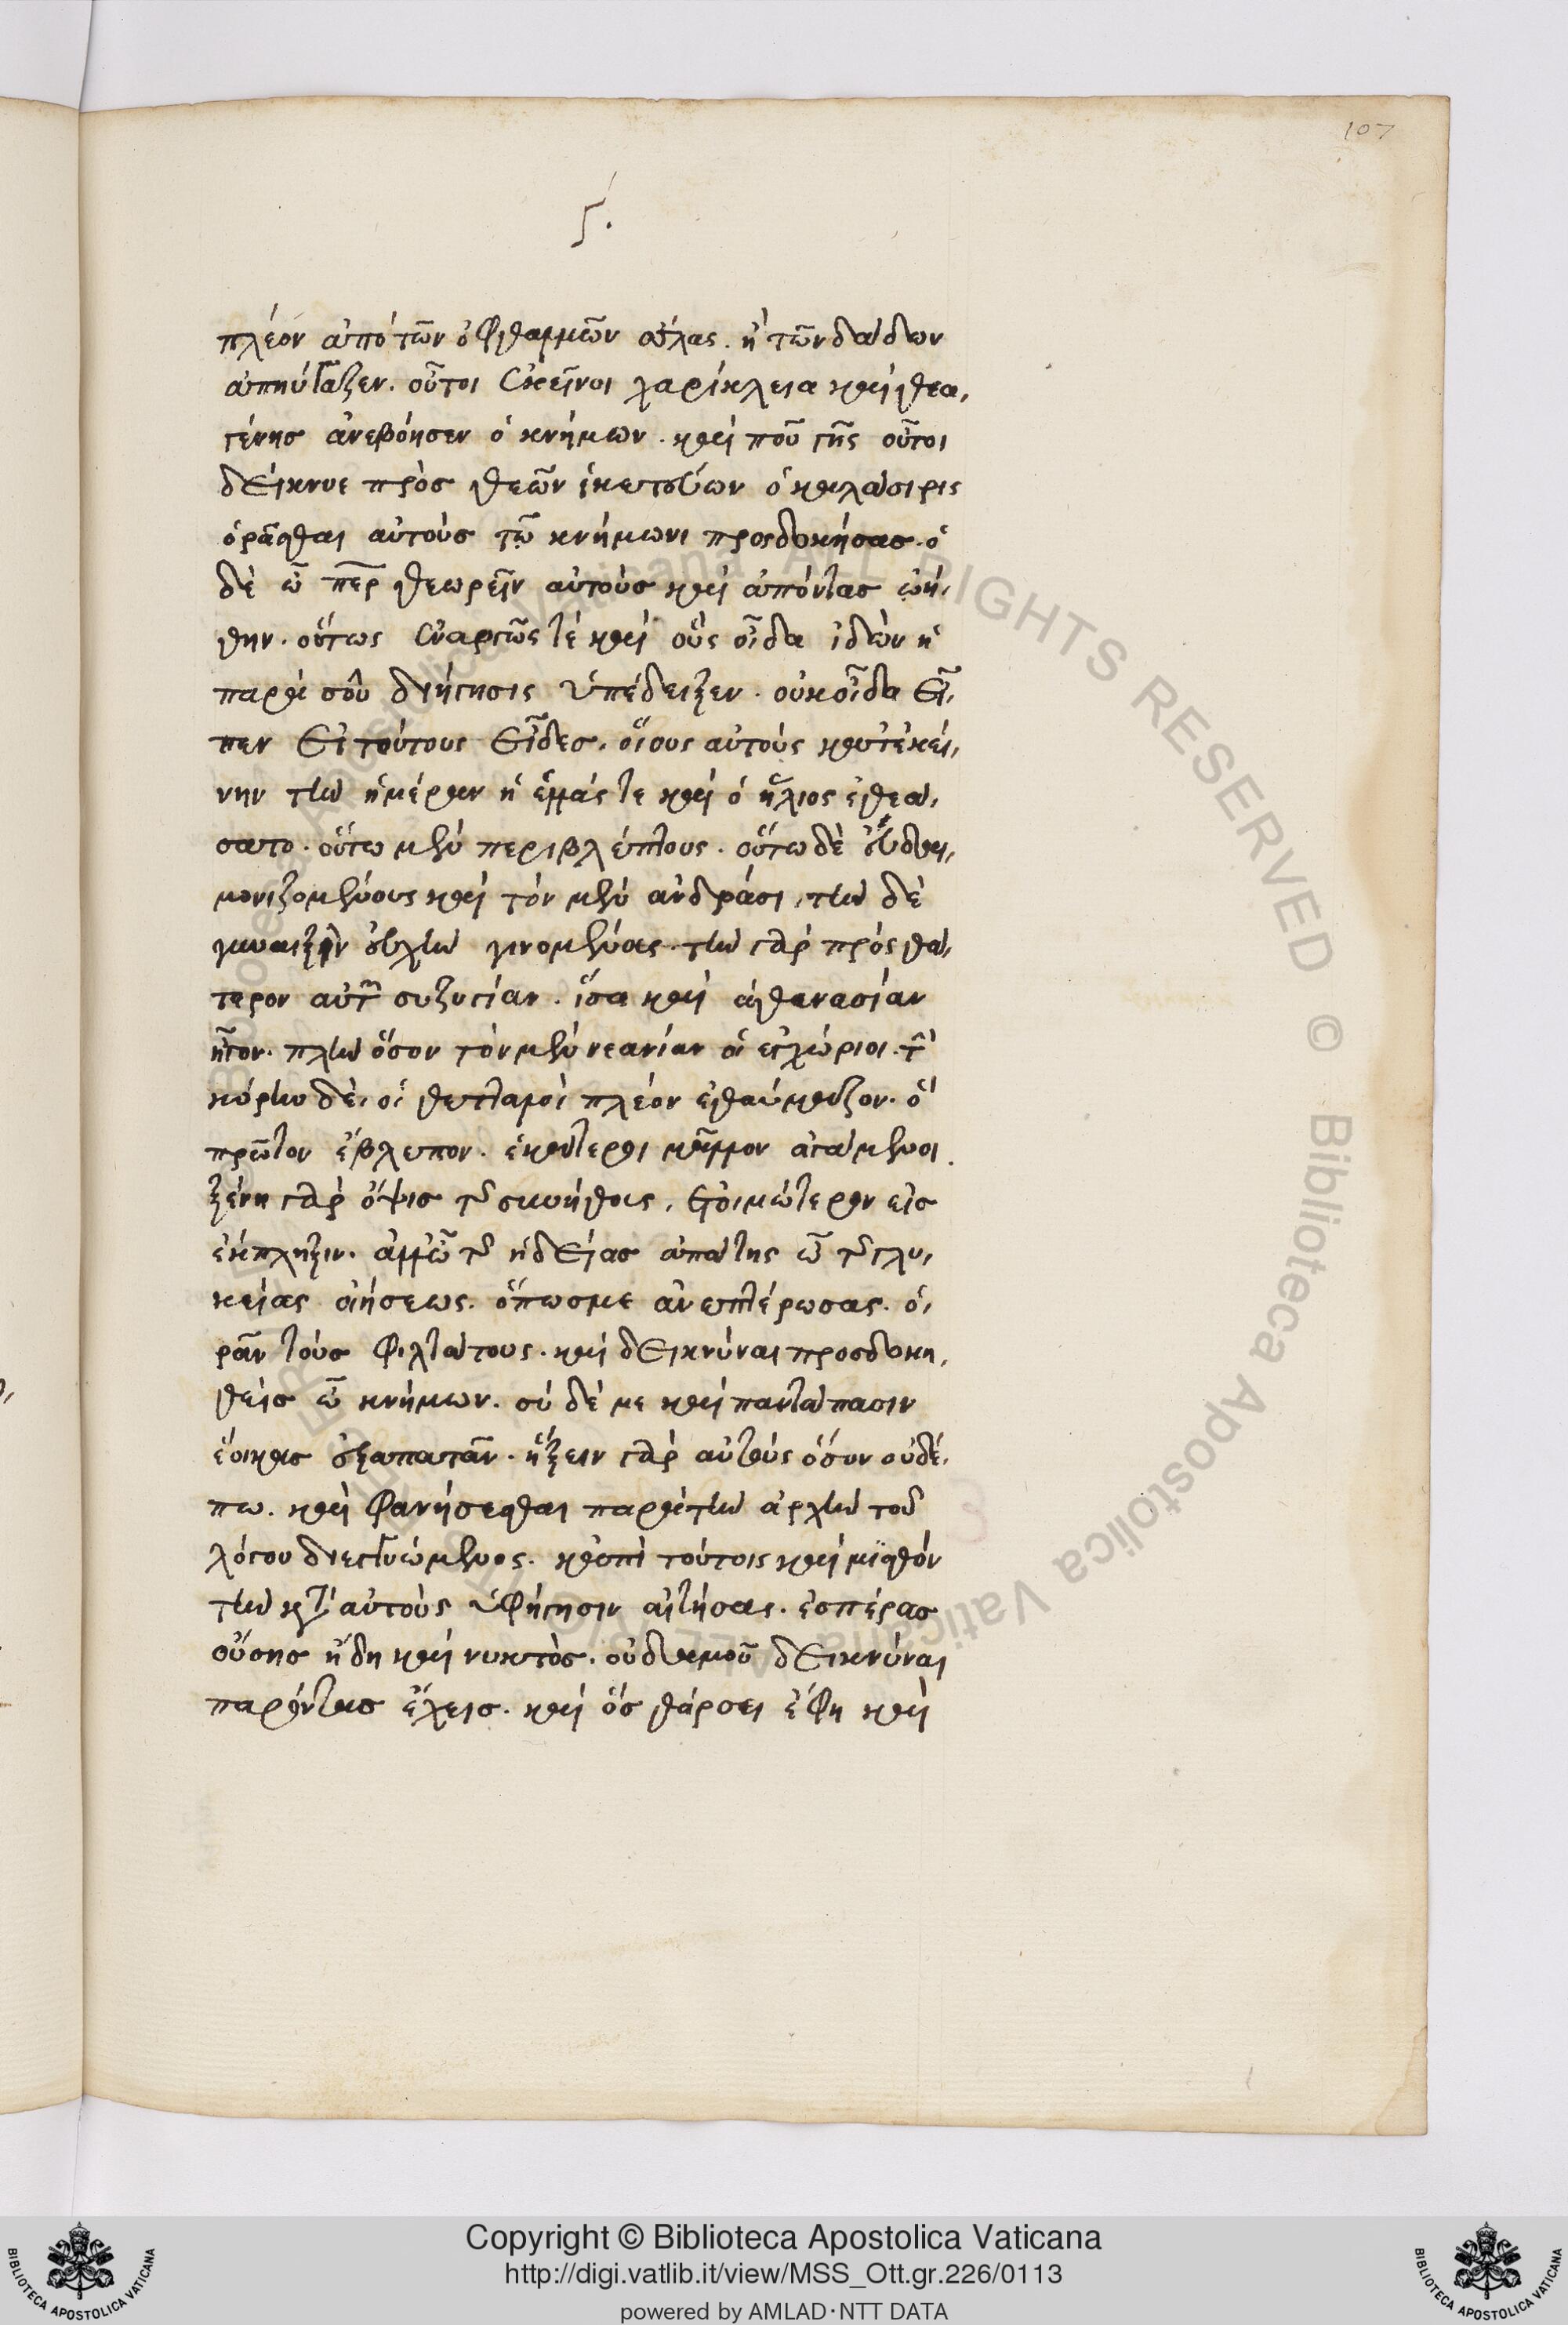 107
ς΄.
πλέον ἀπὸ τῶν ὀφθαλμῶν σέλας. ἢ τῶν δαΐδων
ἀπηύγαζεν. οὗτοι ἐκεῖνοι χαρίκλεια καὶ θεα,
γένης ἀνεβόησεν ὁ κνήμων. καὶ ποῦ γῆς οὗτοι
δείκνυε πρὸς θεῶν ἱκετεύων ὁ καλάσιρις
ὁρᾶσθαι αὐτοὺς τῷ κνήμωνι προσδοκήσας. ὁ
δὲ ὦ περ θεωρεῖν αὐτοὺς καὶ ἀπόντας ᾠή,
θην. οὕτως ἐναργῶς τὲ καὶ οὓς οἶδα ἰδὼν ἡ
παρὰ σοῦ διήγησις ὑπέδειξεν. οὐκ οἶδα εἶ,
πεν εἰ τούτους εἶδες. οἵους αὐτοὺς κατ' ἐκεί,
νην τὴν ἡμέραν ἡ ἑλλάς τε καὶ ὁ ἥλιος ἐθεά,
σατο. οὕτω μὲν περιβλέπτους. οὕτω δὲ εὐδαι,
μονιζομένους καὶ τὸν μὲν ἀνδράσι, τὴν δὲ
γυναιξὶν εὐχὴν γινομένας. τὴν γὰρ πρὸς θά,
τερον αὐτῶν συζυγίαν. ἴσα καὶ ἀθανασίαν
ἦγον. πλὴν ὅσον τὸν μὲν νεανίαν οἱ ἐγχώριοι. τὴν
κόρην δὲ, οἱ θετταλοὶ πλέον ἐθαύμαζον. ὃ
πρῶτον ἔβλεπον. ἑκάτεροι μᾶλλον ἀγάμενοι.
ξένη γὰρ ὄψις τῆς συνήθους, ἑτοιμότερον εἰς
ἔκπληξιν. ἀλλ' ὦ τῆς ἡδείας ἀπάτης ὦ τῆς γλυ,
κείας οἰήσεως. ὅπως με ἀνεπτέρωσας. ὁ,
ρᾶν τοὺς φιλτάτους. καὶ δεικνύναι προσδοκη,
θεὶς ὦ κνήμων. σὺ δέ με καὶ παντάπασιν
ἔοικας ἐξαπατᾶν. ἥξειν γὰρ αὐτοὺς ὅσον οὐδέ,
πω. καὶ φανήσεσθαι παρὰ τὴν ἀρχὴν τοῦ
λόγου διεγγυώμενος. κἀπὶ τούτοις καὶ μισθὸν
τὴν κατ' αὐτοὺς ὑφήγησιν αἰτήσας. ἑσπέρας
οὔσης ἤδη καὶ νυκτὸς. οὐδαμοῦ δεικνύναι
παρόντας ἔχεις. καὶ ὃς θάρσει ἔφη καὶ
Copyright © Biblioteca Apostolica Vaticana
http://digi.vatlib.it/view/MSS_Ott.gr.226/0113
powered by AMLAD·NTT DATA